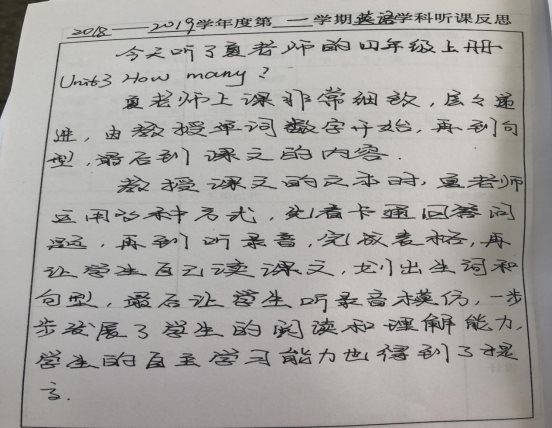 2018——2019学年度第一学期英语学科听课反思
今天听了夏老师的四年级上册
Unit3 How many?
夏老师上课非常细致，层々递
进，由教授单词数字开始，再到句
型，最后到课文的内容.
教授课文的文本时，夏老师
运用多种方式，先看卡通回答问
题，再到听录音，完成表格，再
让学生自己读课文，划出生词和
句型，最后让学生听录音模仿，一步
步发展了学生的阅读和理解能力，
学生的自主学习能力也得到了提
高.